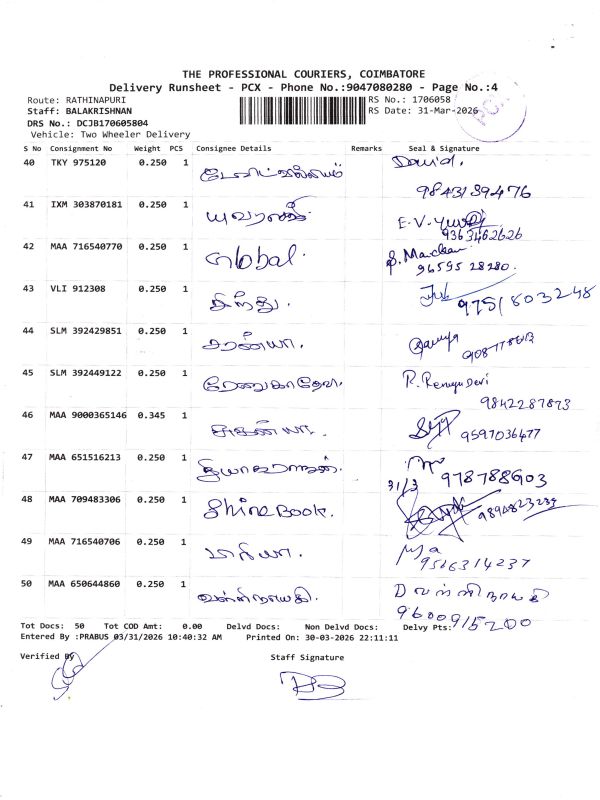 THE PROFESSIONAL COURIERS, COIMBATORE
Delivery Runsheet - PCX - Phone No.:9047080280 - Page No.:4
Route: RATHINAPURI RS No.: 1706058
Staff: BALAKRISHNAN RS Date: 31-Mar-2026
DRS No.: DCJB170605804
Vehicle: Two Wheeler Delivery
S No Consignment No Weight PCS Consignee Details Remarks Seal & Signature
40 TKY 975120 0.250 1 David.
9843139476
41 IXM 303870181 0.250 1 யுவராணி E.V.
9363462626
42 MAA 716540770 0.250 1 Global.
9659528280.
43 VLI 912308 0.250 1 சிந்து.
9751803248
44 SLM 392429851 0.250 1 சரண்யா.
45 SLM 392449122 0.250 1 ரேணுகாதேவி. R. Renuga Devi
9842287873
46 MAA 9000365146 0.345 1 சுகன்யா.
9597036477
47 MAA 651516213 0.250 1
31/3 978788903
48 MAA 709483306 0.250 1 Shine Book.
9894823239
49 MAA 716540706 0.250 1 மரியா.
9516314237
50 MAA 650644860 0.250 1 வள்ளிநாயகி.
9600915200
Tot Docs: 50 Tot COD Amt: 0.00 Delvd Docs: Non Delvd Docs: Delvy Pts:
Entered By :PRABUS 03/31/2026 10:40:32 AM Printed On: 30-03-2026 22:11:11
Verified By Staff Signature